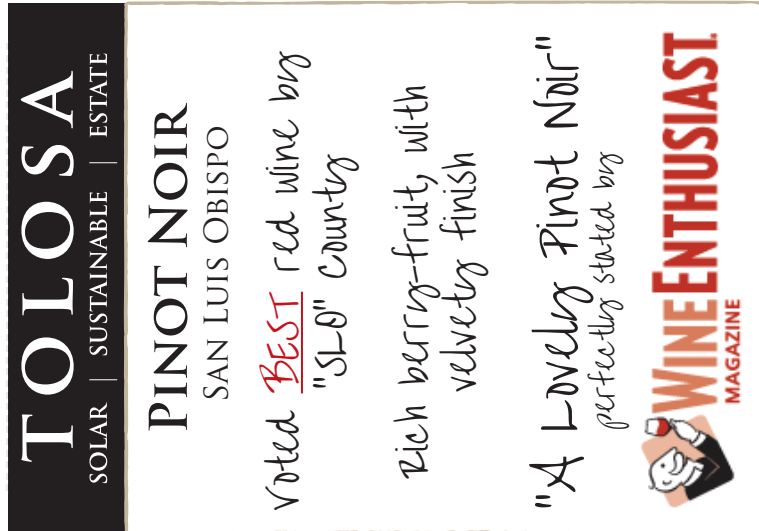 TOLOSA
SOLAR | SUSTAINABLE | ESTATE
PINOT NOIR
SAN LUIS OBISPO
Voted BEST red wine by
"SLO" County
Rich berry-fruit, with
velvety finish
"A Lovely Pinot Noir"
perfectly stated by
WINEENTHUSIAST.
MAGAZINE